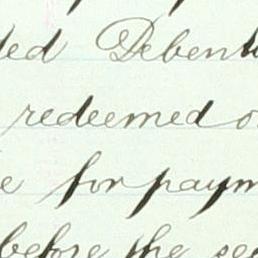 ded Deben
redeemed o
e for paym
before the se